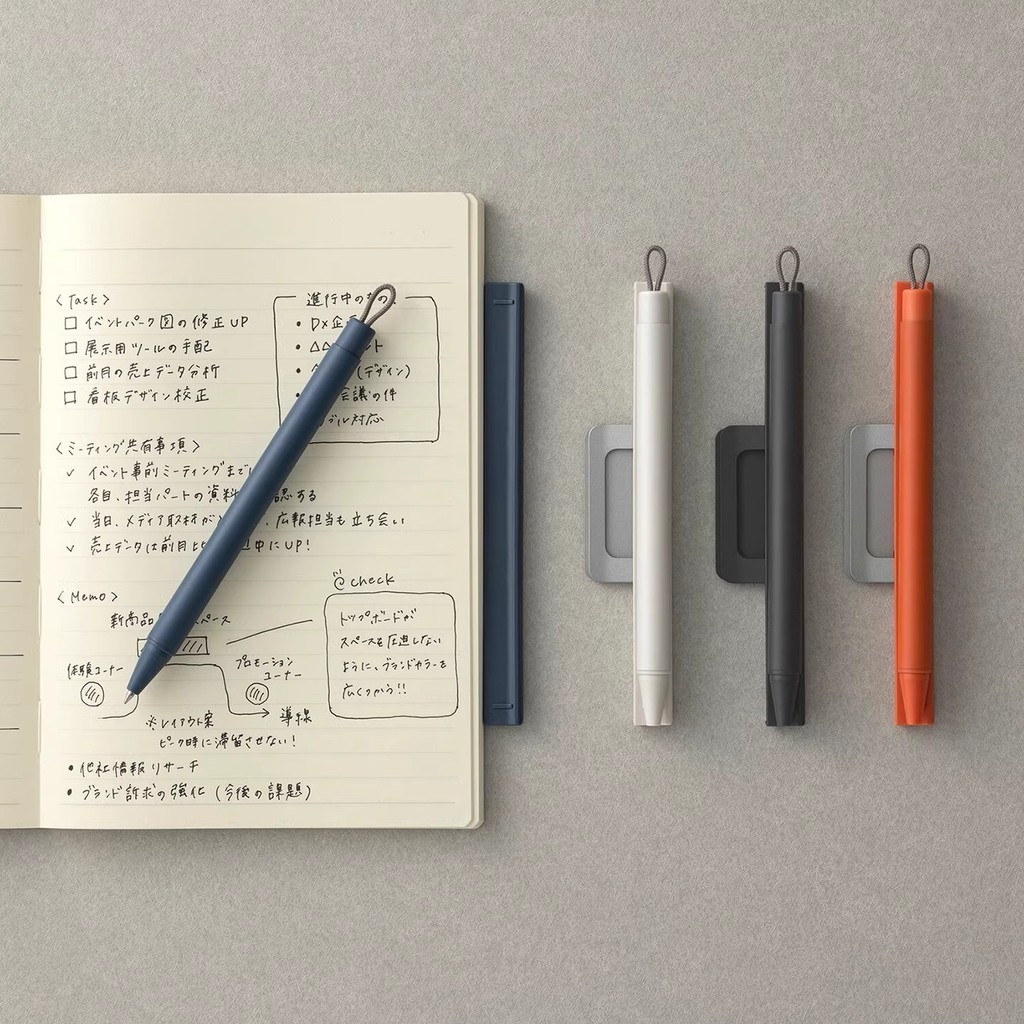 <Task>
□ イベントパーク図の修正UP
□ 展示用ツールの手配
□ 前月の売上データ分析
□ 看板デザイン校正
進行中のもの
• DX企
• △△ ント
• (デザイン)
• 会議の件
ブル対応
<ミーティング共有事項>
✓ イベント事前ミーティングまでに
各自、担当パートの資料 認する
✓ 当日、メディア取材が 、広報担当も立ち会い
✓ 売上データは前月比 中にUP!
<Memo>
新商品 スペース
体験コーナー
プロモーション
コーナー
導線
※レイアウト案
ピーク時に滞留させない!
check
トップボードが
スペースを圧迫しない
ように、ブランドカラーを
広くつかう!!
• 他社情報リサーチ
• ブランド訴求の強化(今後の課題)